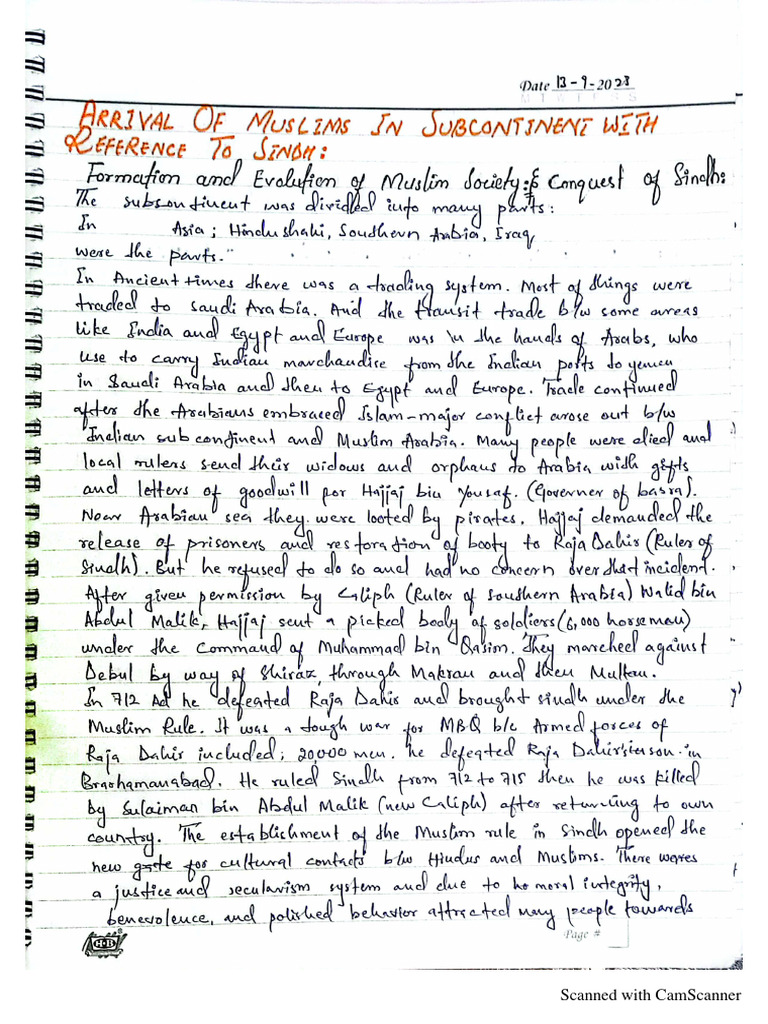 Date 13-9-2023
M T W T F S
ARRIVAL OF MUSLIMS IN SUBCONTINENT WITH
REFERENCE TO SINDH:
Formation and Evolution of Muslim Society: & Conquest of Sindh:
The subsontinent was divided into many parts:
In Asia; Hindushahi, Southern Arabia, Iraq
were the parts."
In Ancient times there was a trading system. Most of things were
traded to saudi Arabia. And the transit trade b/w some areas
like India and Egypt and Europe was in the hands of Arabs, who
use to carry Indian marchandise from the Indian ports to yemen
in Saudi Arabia and then to Egypt and Europe. Trade continued
after the Arabians embraced Islam-major conflict arose out b/w
Indian subcontinent and Muslim Arabia. Many people were died and
local rulers send their widows and orphans to Arabia with gifts
and letters of goodwill for Hajjaj bin Yousaf. (Governer of basra).
Near Arabian sea they were looted by pirates. Hajjaj demanded the
release of prisoners and restoration of booty to Raja Dahir (Ruler of
Sindh). But he refused to do so and had no concern over that incident.
After given permission by Caliph (Ruler of Southern Arabia) Walid bin
Abdul Malik, Hajjaj sent a picked body of soldiers (6,000 horseman)
under the command of Muhammad bin Qasim. They marched against
Debul by way of Shiraz, through Makran and then Multan.
In 712 Ad he defeated Raja Dahir and brought sindh under the
Muslim Rule. It was a tough war for MBQ b/c Armed forces of
Raja Dahir included; 20,000 men. he defeated Raja Dahir's son in
Brahamanabad. He ruled Sindh from 712 to 715 then he was killed
by Sulaiman bin Abdul Malik (new Caliph) after returning to own
country. The establishment of the Muslim rule in Sindh opened the
new gate for cultural contacts b/w Hindus and Muslims. There weres
a justice and secularism system and due to he moral integrity,
benevolence, and polished behavior attracted many people towards
Page #
Scanned with CamScanner